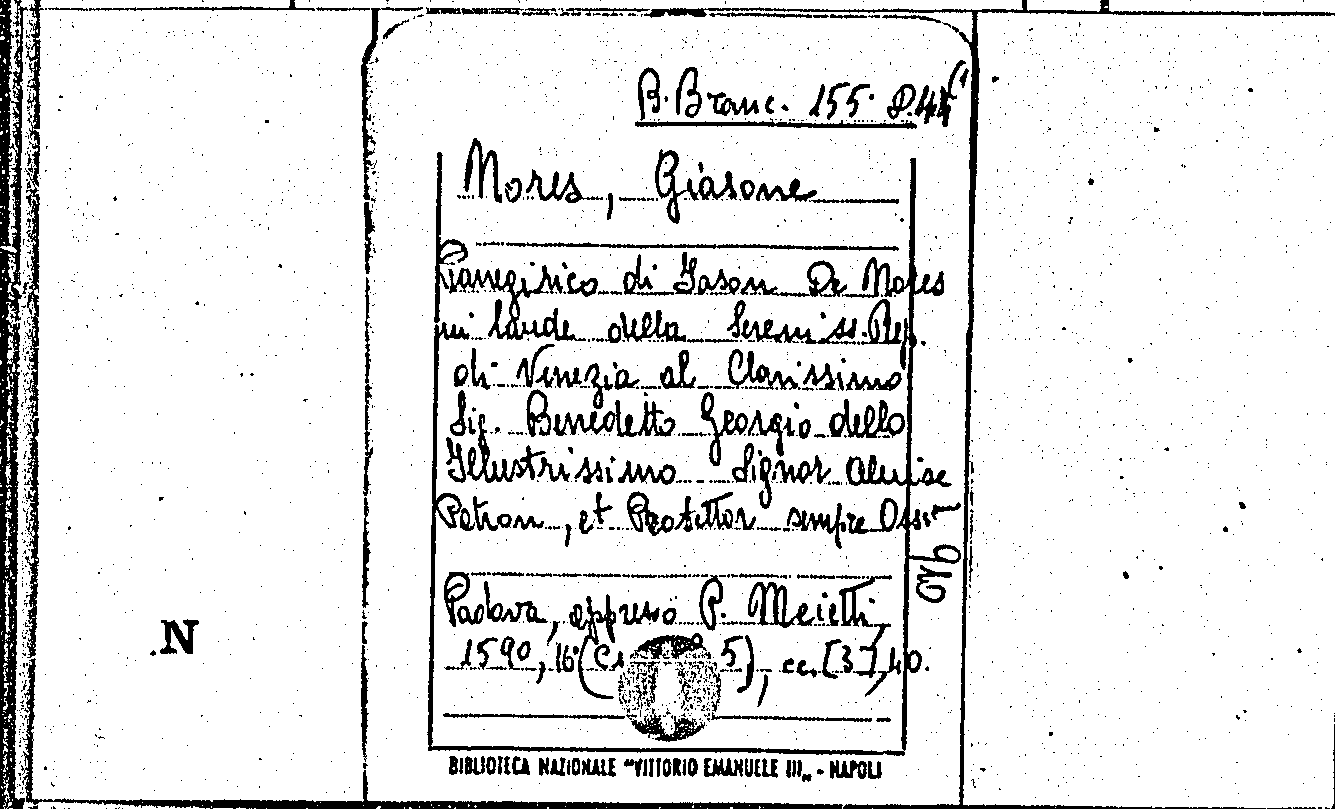 B. Branc. 155. P.44(1
Mores, Giasone
Panegirico di Jason De Mores
in laude della Sereniss. Rep.
di Venezia al Clarissimo
Sig. Benedetto Georgio dello
Illustrissimo Signor Aluise
Patron, et Protettor sempre Oss.mo
Padova, appresso P. Meietti,
1590, 16° 5), cc. [3], 40.
N
BIBLIOTECA NAZIONALE "VITTORIO EMANUELE III„ - NAPOLI